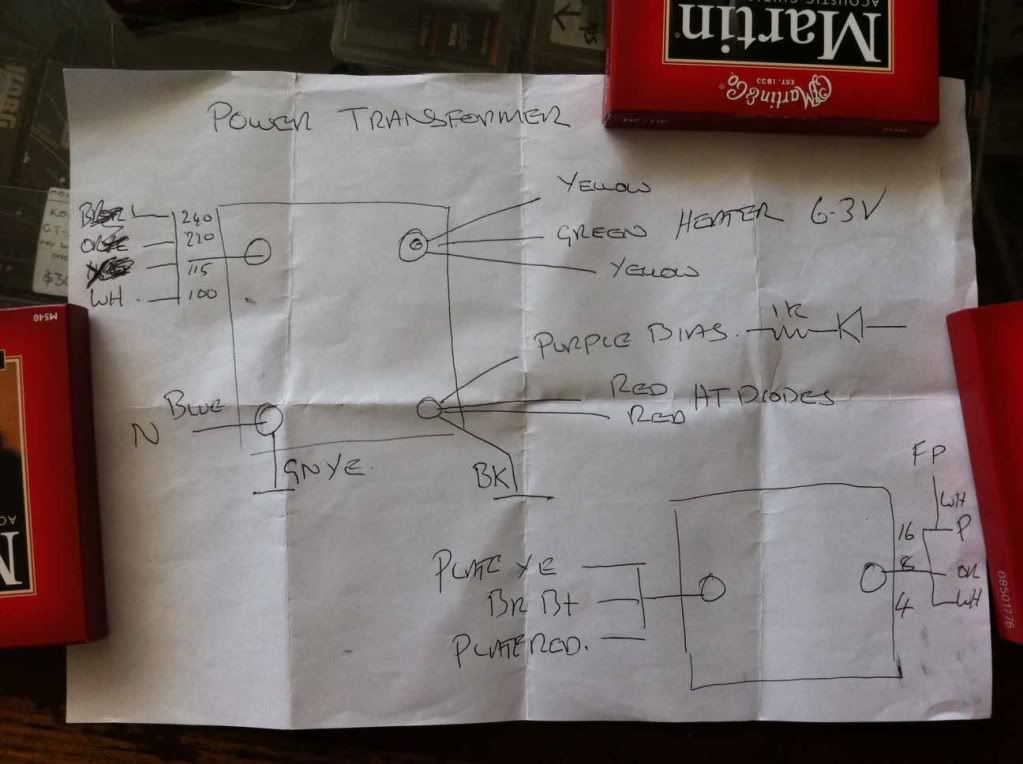 Martin
Martin & Co
EST. 1833
POWER TRANSFORMER
240
220
115
WH 100
YELLOW
GREEN HEATER 6.3V
YELLOW
PURPLE BIAS. 1K
RED HT DIODES
RED
BLUE
N
GNYE.
BK
FP
WH
16 P
8 OR
4 WH
PLATE YE
BR B+
PLATE RED.
M540
08501776